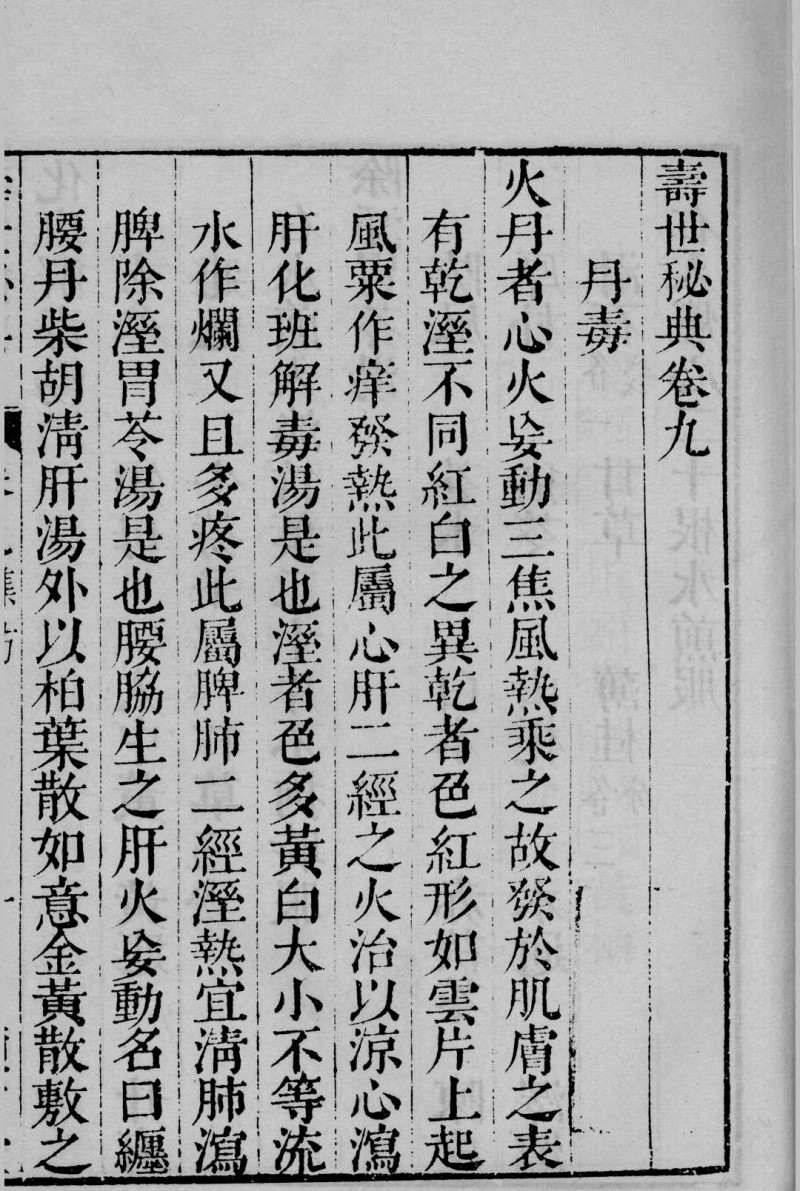 壽世秘典卷九
丹毒
火丹者心火妄動三焦風熱乘之故發於肌膚之表
有乾溼不同紅白之異乾者色紅形如雲片上起
風粟作痒發熱此屬心肝二經之火治以涼心瀉
肝化班解毒湯是也溼者色多黃白大小不等流
水作爛又且多疼此屬脾肺二經溼熱宜清肺瀉
脾除溼胃苓湯是也腰脇生之肝火妄動名曰纏
腰丹柴胡清肝湯外以柏葉散如意金黃散敷之